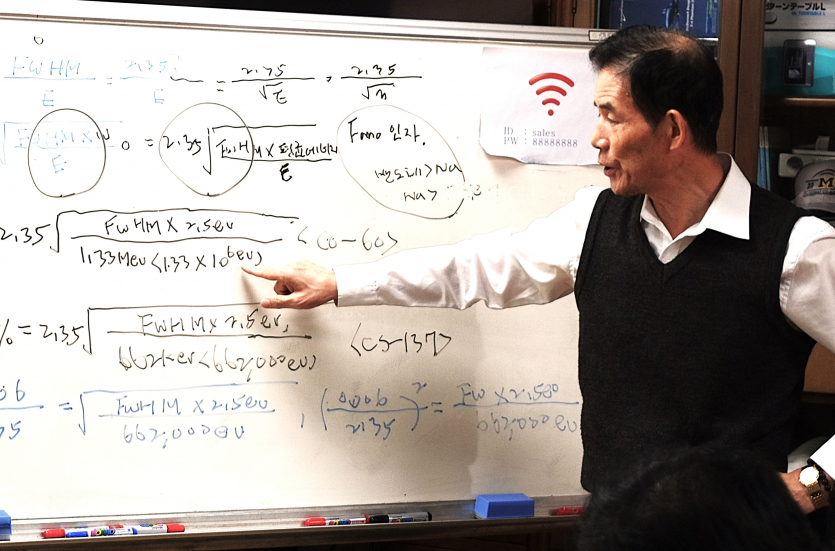 FWHM / E = 2.35 / E = 2.35 / √E = 2.35 / √n
0 = 2.35 √ FWHM X 평균에너지 / E
Fano 인자.
반도체 > Na
Na >
2.35 √ FWHM X 2.5eV / 1.33MeV <1.33 X 10⁶eV> <CO-60>
% = 2.35 √ FWHM X 2.5eV, / 662keV <662,000eV> <CS-137>
= √ FWHM X 2.5eV / 662,000eV , (0.006 / 2.35)² = FW X 2.5eV / 662,000eV
ID : sales
PW : 88888888
ターンテーブルL
M